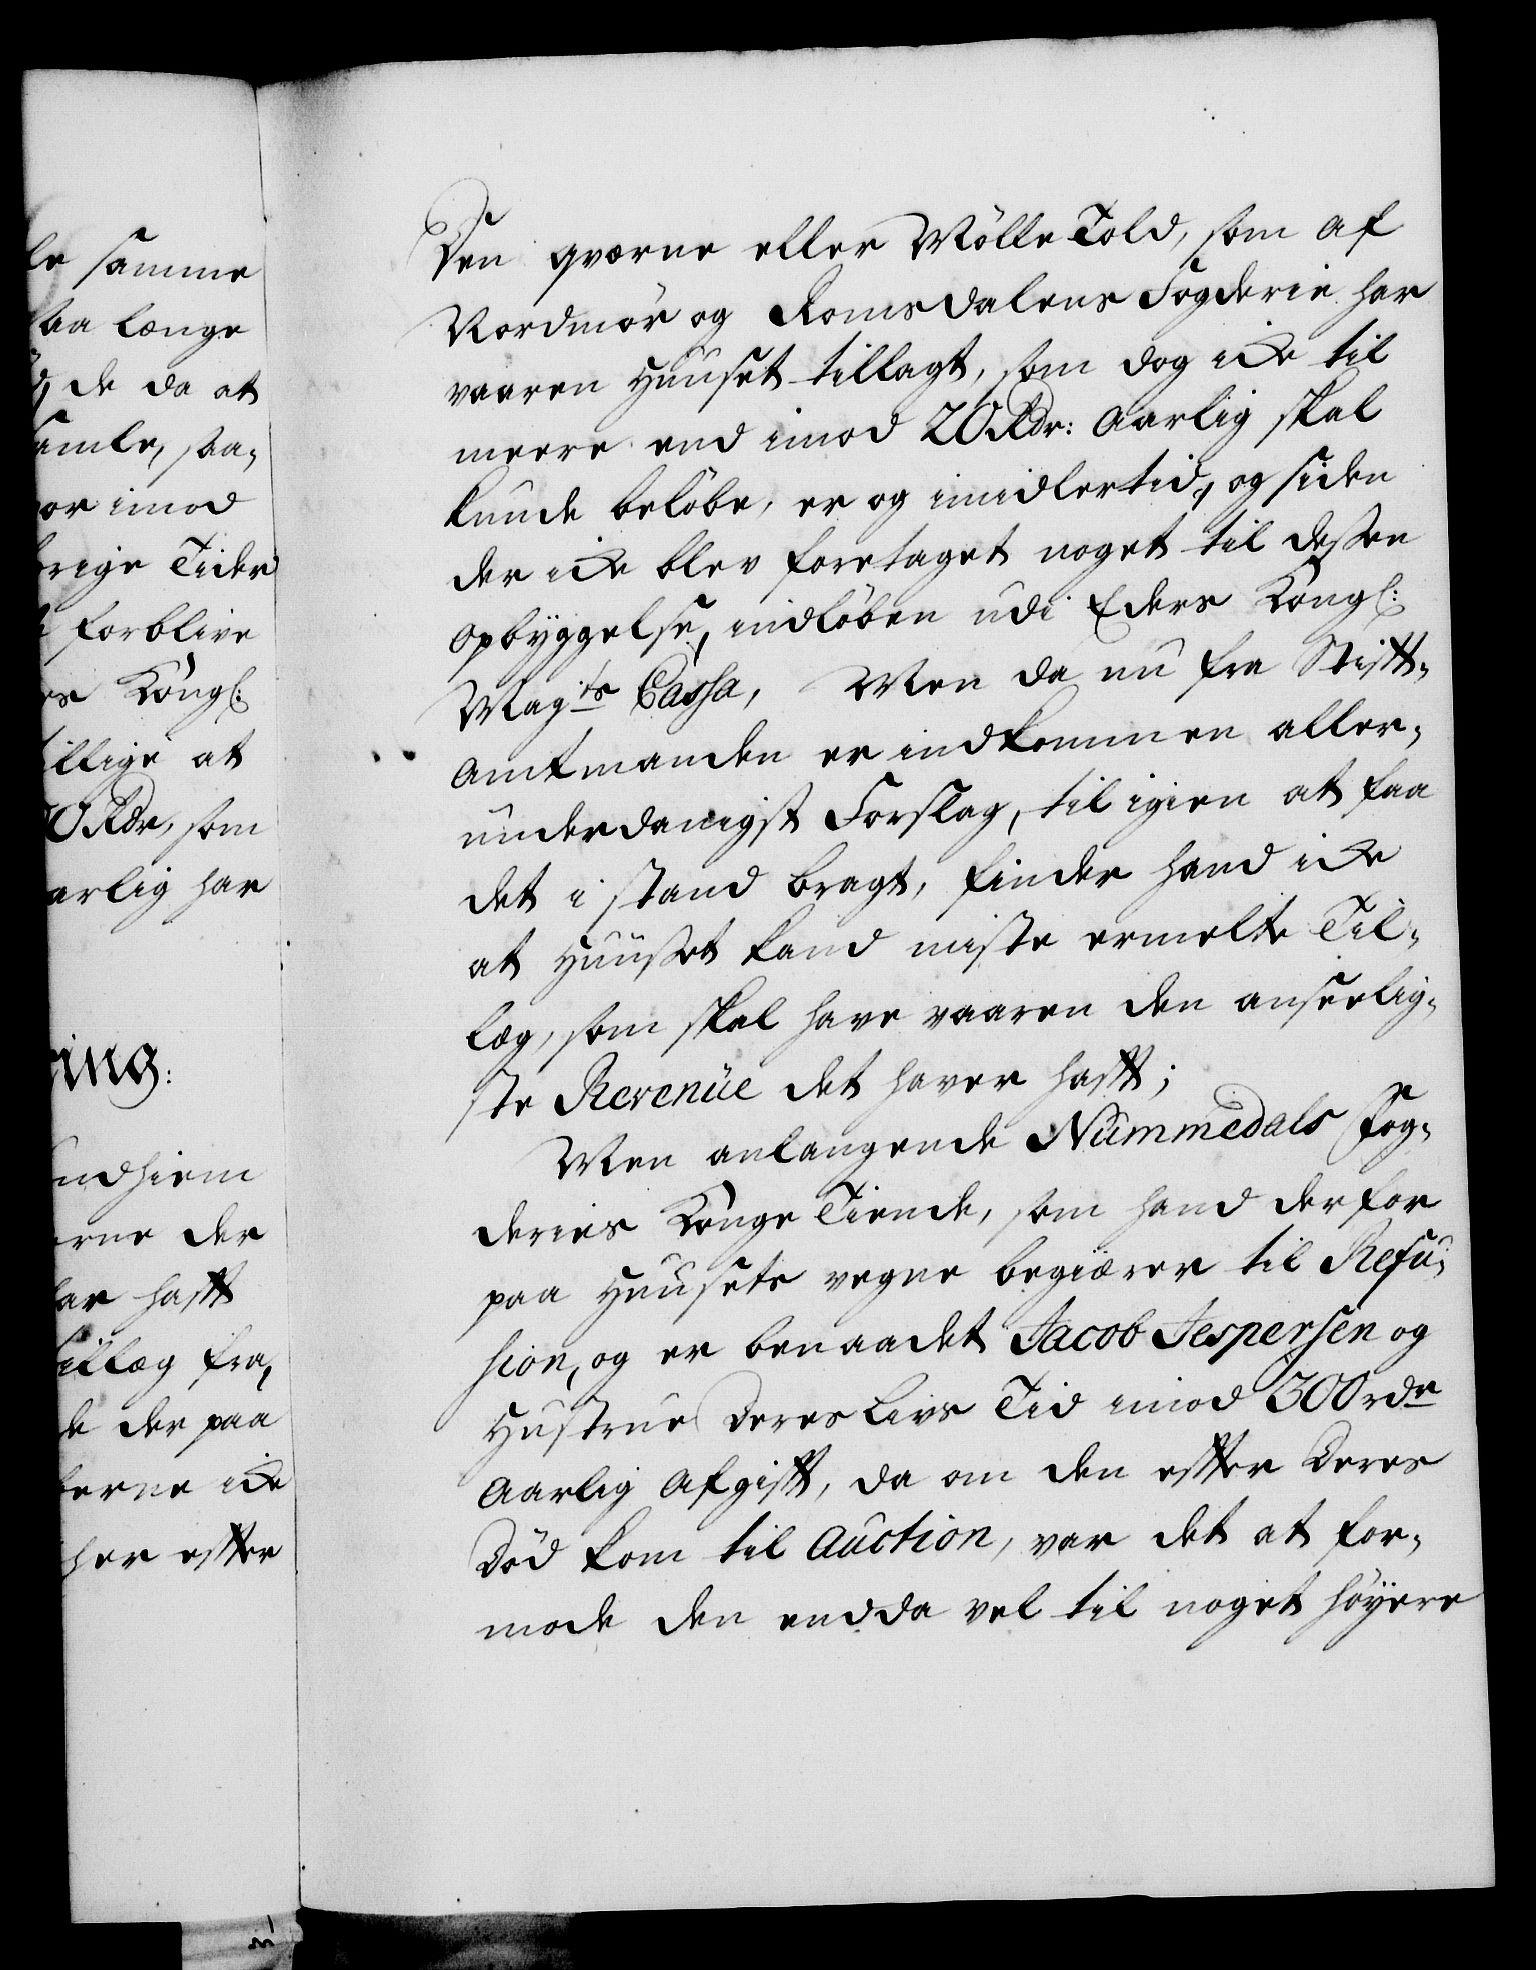 le samme
saa længe
de da at
samle, saa-
or imod
rige Tider
forblive
es Kongl:
tillige at
0 Rdr, som
arlig har
ring:
ndhiem
erne der
har hafft
Tillæg fra,
de der paa
berne icke
her effter
Den qværne eller Mølle Told, som af
Nordmør og Romsdalens Fogderie har
vaaren Huuset tillagt, som dog icke til
meere end imod 20 Rdr: aarlig skal
kunde beløbe, er og imidlertid, og siden
der icke blev foretaget noget til dessen
opbyggelse, indløben udi Eders Kongl:
Mayts Cassa, Men da nu fra Stifft-
amtmanden er indkommen aller-
underdanigst Forslag, til igien at faa
det i stand bragt, finder hand icke
at Huuset kand miste ermelte Til-
læg, som skal have vaaren den anseelig-
ste Revenüe det haver hafft;
Men anlangende Nummedals Fog-
deries Konge Tiende, som hand derfor
paa Huusets vegne begiærer til Refu-
sion, og er benaadet Jacob Jespersen og
Hustrue deres Livs Tid imod 300 rdr
aarlig afgifft, da om den effter deres
død kom til Auction, var det at for-
mode den endda vel til noget høyere